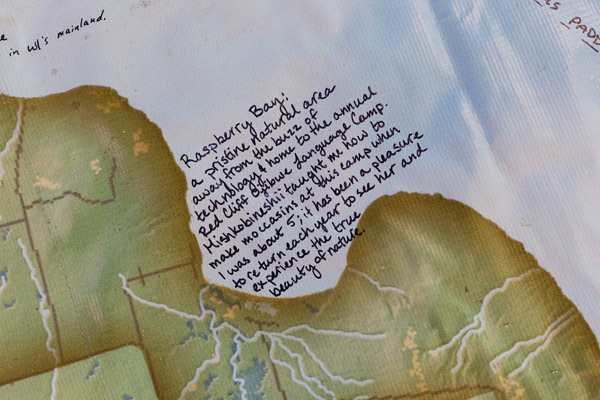 in WI's mainland.
Raspberry Bay:
a pristine natural area
away from the buzz of
technology & home to the annual
Red Cliff Ojibwe Language Camp.
Mishkobineshii taught me how to
make moccasins at this camp when
I was about 5; it has been a pleasure
to return each year to see her and
experience the true
beauty of nature.